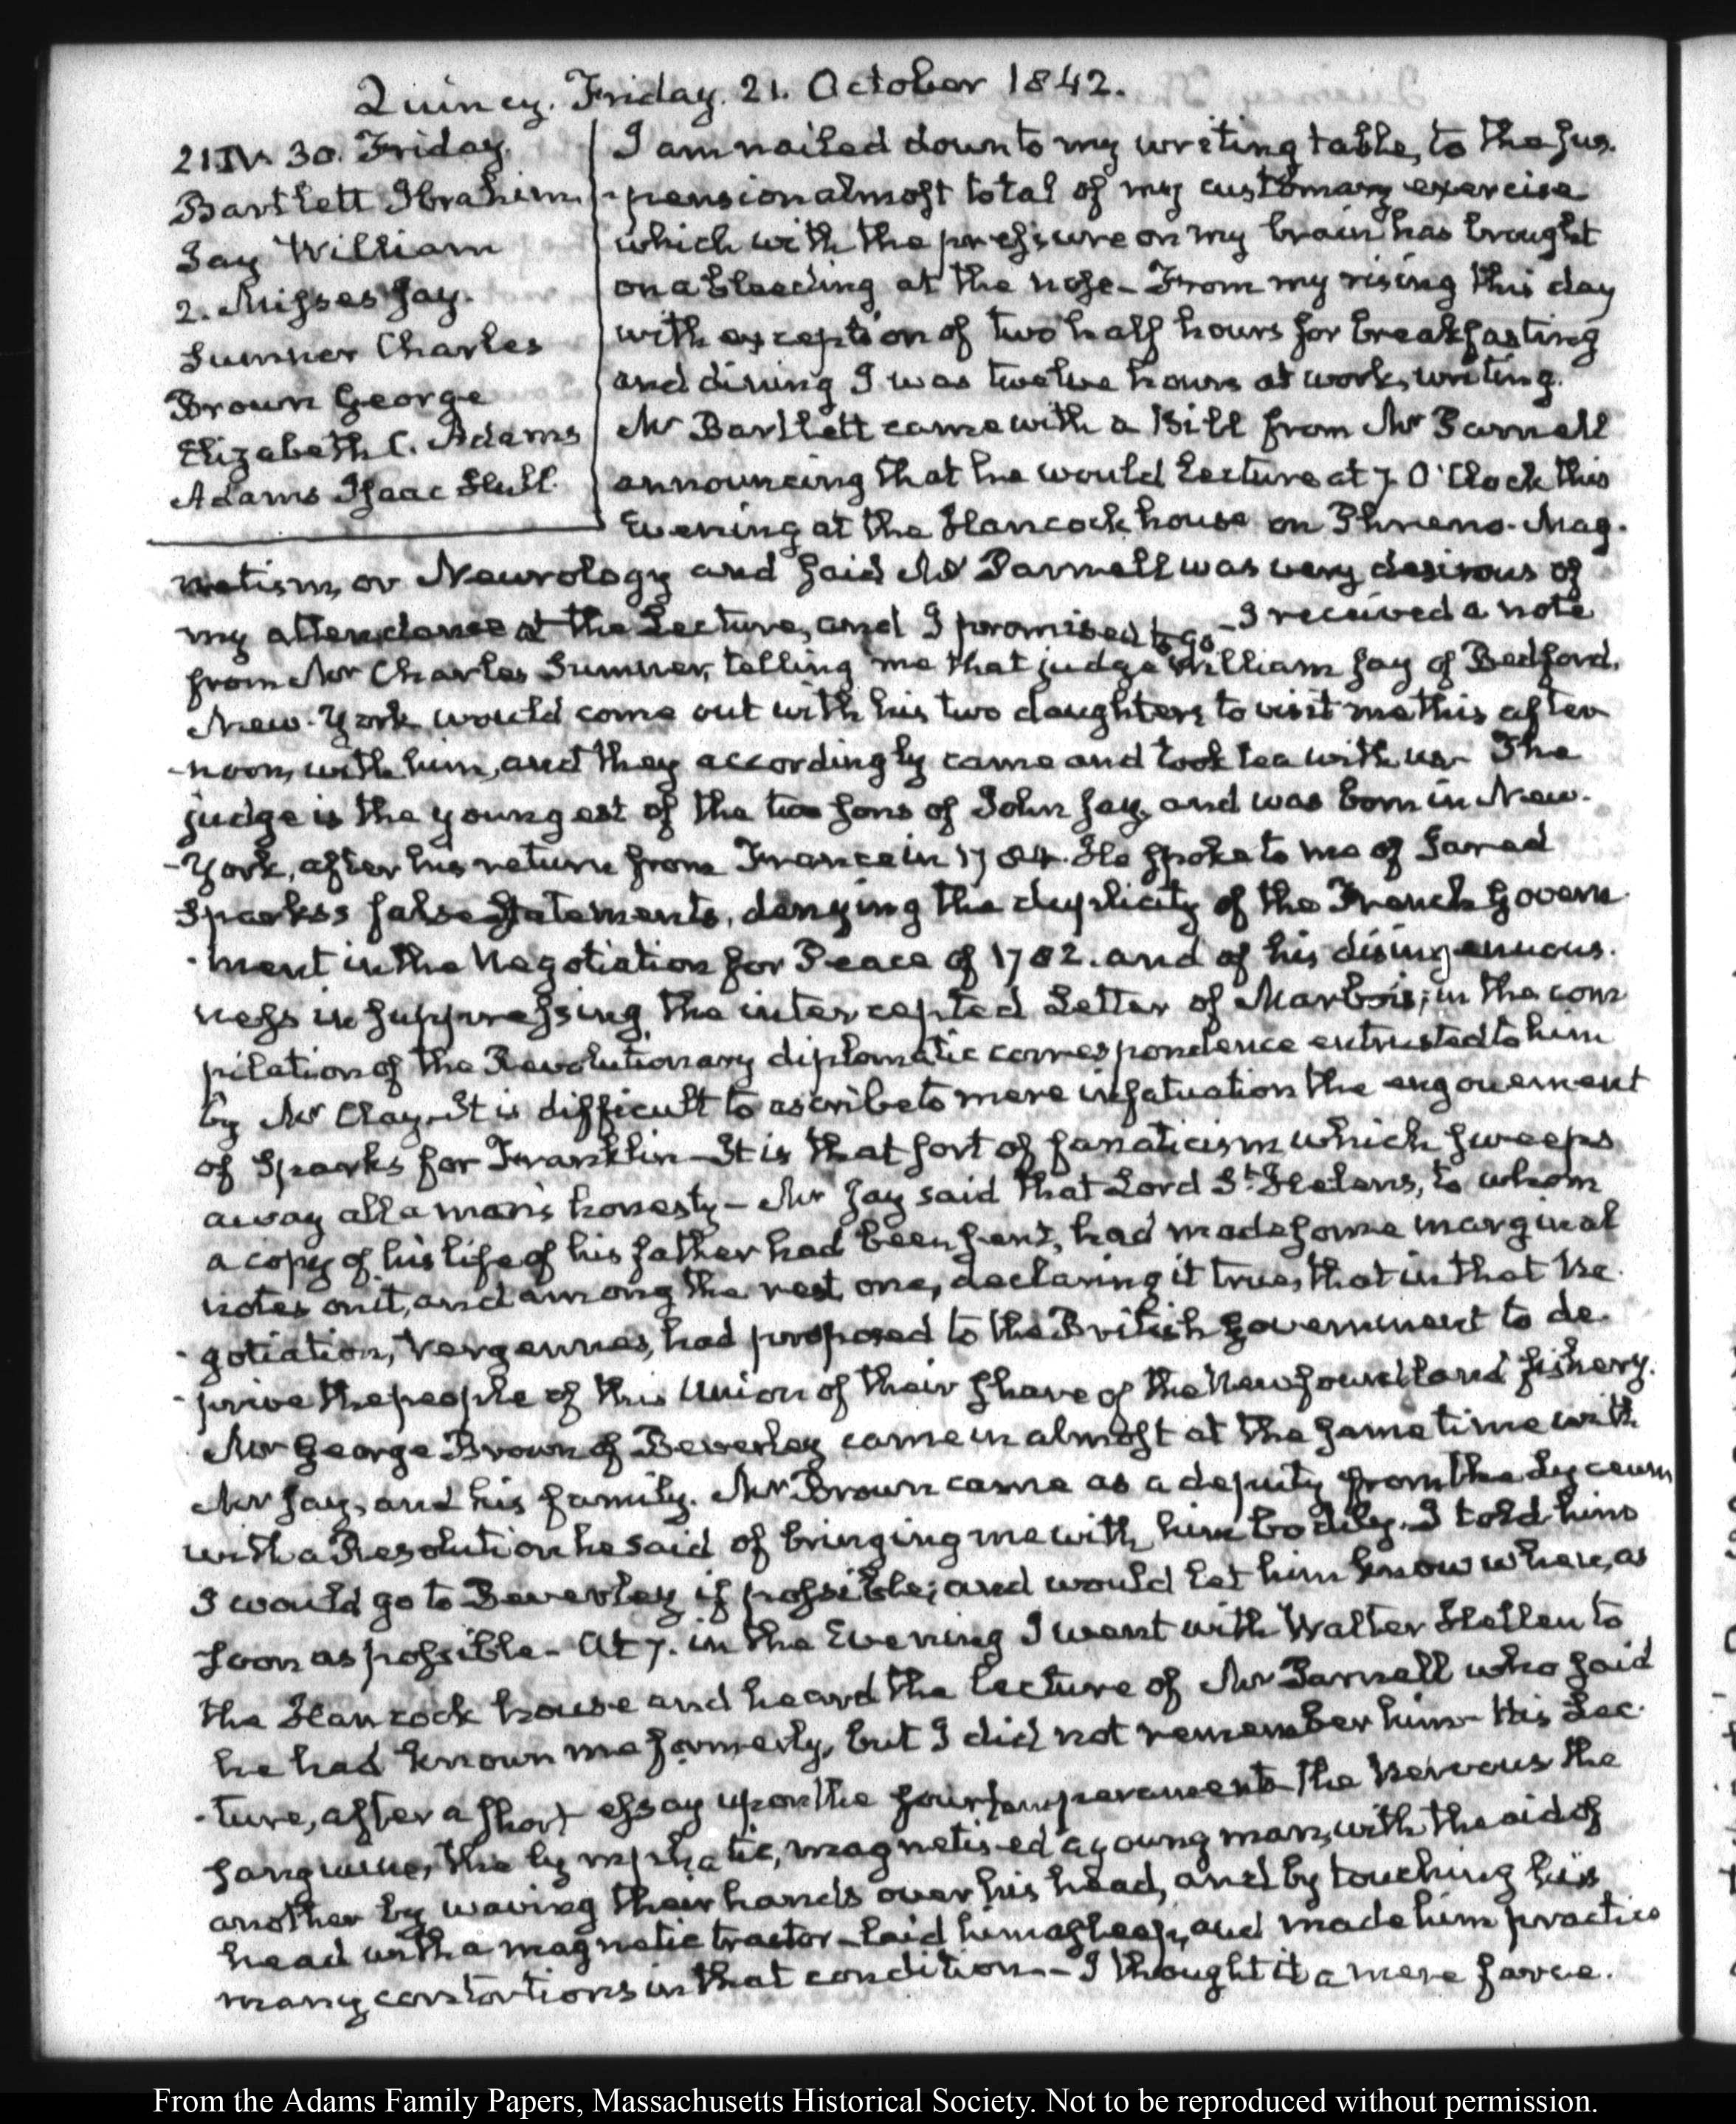 Quincy. Friday. 21. October 1842.
21 IV. 30. Friday.
Bartlett Ibrahim
Jay William
2. Misses Jay.
Sumner Charles
Brown George
Elizabeth C. Adams
Adams Isaac Hull.
I am nailed down to my writing table, to the sus-
-pension almost total of my customary exercise
which with the pressure on my brain has brought
on a bleeding at the nose – From my rising this day
with exception of two half hours for breakfasting
and dining I was twelve hours at work, writing.
Mr Bartlett came with a Bill from Mr Parnell
announcing that he would Lecture at 7. O'Clock this
Evening at the Hancock house on Phreno-Mag-
netism, or Neurology and said Mr Parnell was very desirous of
my attendance at the Lecture, and I promised to go – I received a note
from Mr Charles Sumner, telling me that judge William Jay of Bedford,
New-York would come out with his two daughters to visit me this after
-noon, with him, and they accordingly came and took tea with us – The
judge is the youngest of the two sons of John Jay, and was born in New-
-York, after his return from France in 1784. He spoke to me of Jared
Sparks's false statements, denying the duplicity of the French Govern-
-ment in the Negotiation for Peace of 1782. and of his disingenuous-
ness in suppressing the intercepted Letter of Marbois; in the com
pilation of the Revolutionary diplomatic correspondence entrusted to him
by Mr Clay. It is difficult to ascribe to mere infatuation the engouement
of Sparks for Franklin – It is that sort of fanaticism which sweeps
away all a man's honesty – Mr Jay said that Lord St. Helens, to whom
a copy of his life of his father had been sent, had made some marginal
notes on it, and among the rest one, declaring it true, that in that Ne-
-gotiation, Vergennes, had proposed to the British Government to de-
-prive the people of this Union of their share of the Newfoundland fishery.
Mr George Brown of Beverley came in almost at the same time with
Mr Jay, and his family. Mr Brown came as a deputy from the Lyceum
with a Resolution he said of bringing me with him bodily. I told him
I would go to Beverley if possible; and would let him know when, as
soon as possible – At 7. in the Evening I went with Walter Hellen to
the Hancock house and heard the lecture of Mr Parnell who said
he had known me formerly, but I did not remember him – His Lec-
-ture, after a short essay upon the four temperaments the Nervous the
sanguine, the lymphatic, magnetised a young man, with the aid of
another by waving their hands over his head, and by touching his
head with a magnetic tractor – laid him asleep, and made him practice
many contortions in that condition – I thought it a mere farce.
From the Adams Family Papers, Massachusetts Historical Society. Not to be reproduced without permission.